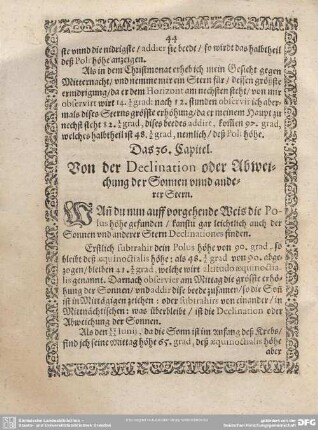 44
ste vnnd die nidrigste / addier sie beede / so wirdt das halbtheil
deß Poli höhe anzeigen.
Als in dem Christmonat erheb ich mein Gesicht gegen
Mitternacht, vnd nimm mir ein Stern für / dessen grösste
ernidrigung / da er dem Horizont am nechsten steht / von mir
observirt wirt 14. grad: nach 12. stunden observir ich aber-
mals dises Sterns grösste erhöhung / da er meinem Haupt zu
nechst steht 12. grad, dises beedes addirt, kommen 97. grad,
welches halbtheil ist 48. grad, nemlich / deß Poli höhe.
Das 36. Capitel.
Von der Declination oder Abwei-
chung der Sonnen vnnd ande-
rer Stern.
WAñ du nun auff vorgehende Weis die Po-
lus höhe gefunden / kanstu gar leichtlich auch der
Sonnen vnd anderer Stern Declinationes finden.
Erstlich subtrahir dein Polus höhe von 90. grad, so
bleibt deß æquinoctialis höhe: als 48. grad von 90. abge-
zogen / bleiben 41. grad, welche wirt altitudo æquinoctia-
lis genannt. Darnach observier am Mittag die grösste erhö-
hung der Sonnen / vnd addir dise beede zusamen / so die Soñ
ist in Mittägigen zeichen: oder subtrahirs von einander / in
Mitnächtischen: was überbleibt / ist die Declination oder
Abweichung der Sonnen.
Als den Iunij, da die Soñ ist im Anfang deß Krebs /
sind ich seine mittag höhe 65. grad, deß æquinoctialis höhe
aber